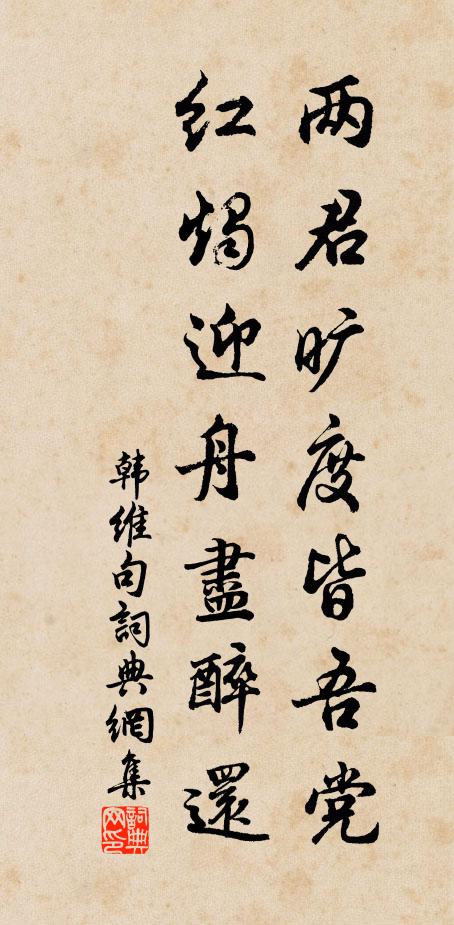 两君旷度皆吾党
红烛迎舟盡醉還
韩维句詞典網集
詞典网印